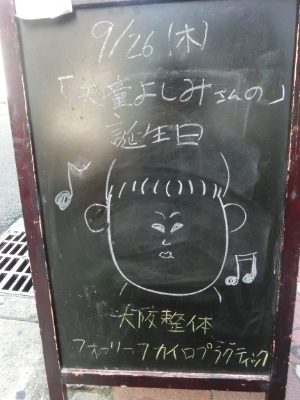 9/26(木)
「天童よしみさんの」
誕生日
大阪整体
フォーリーフカイロプラクティック